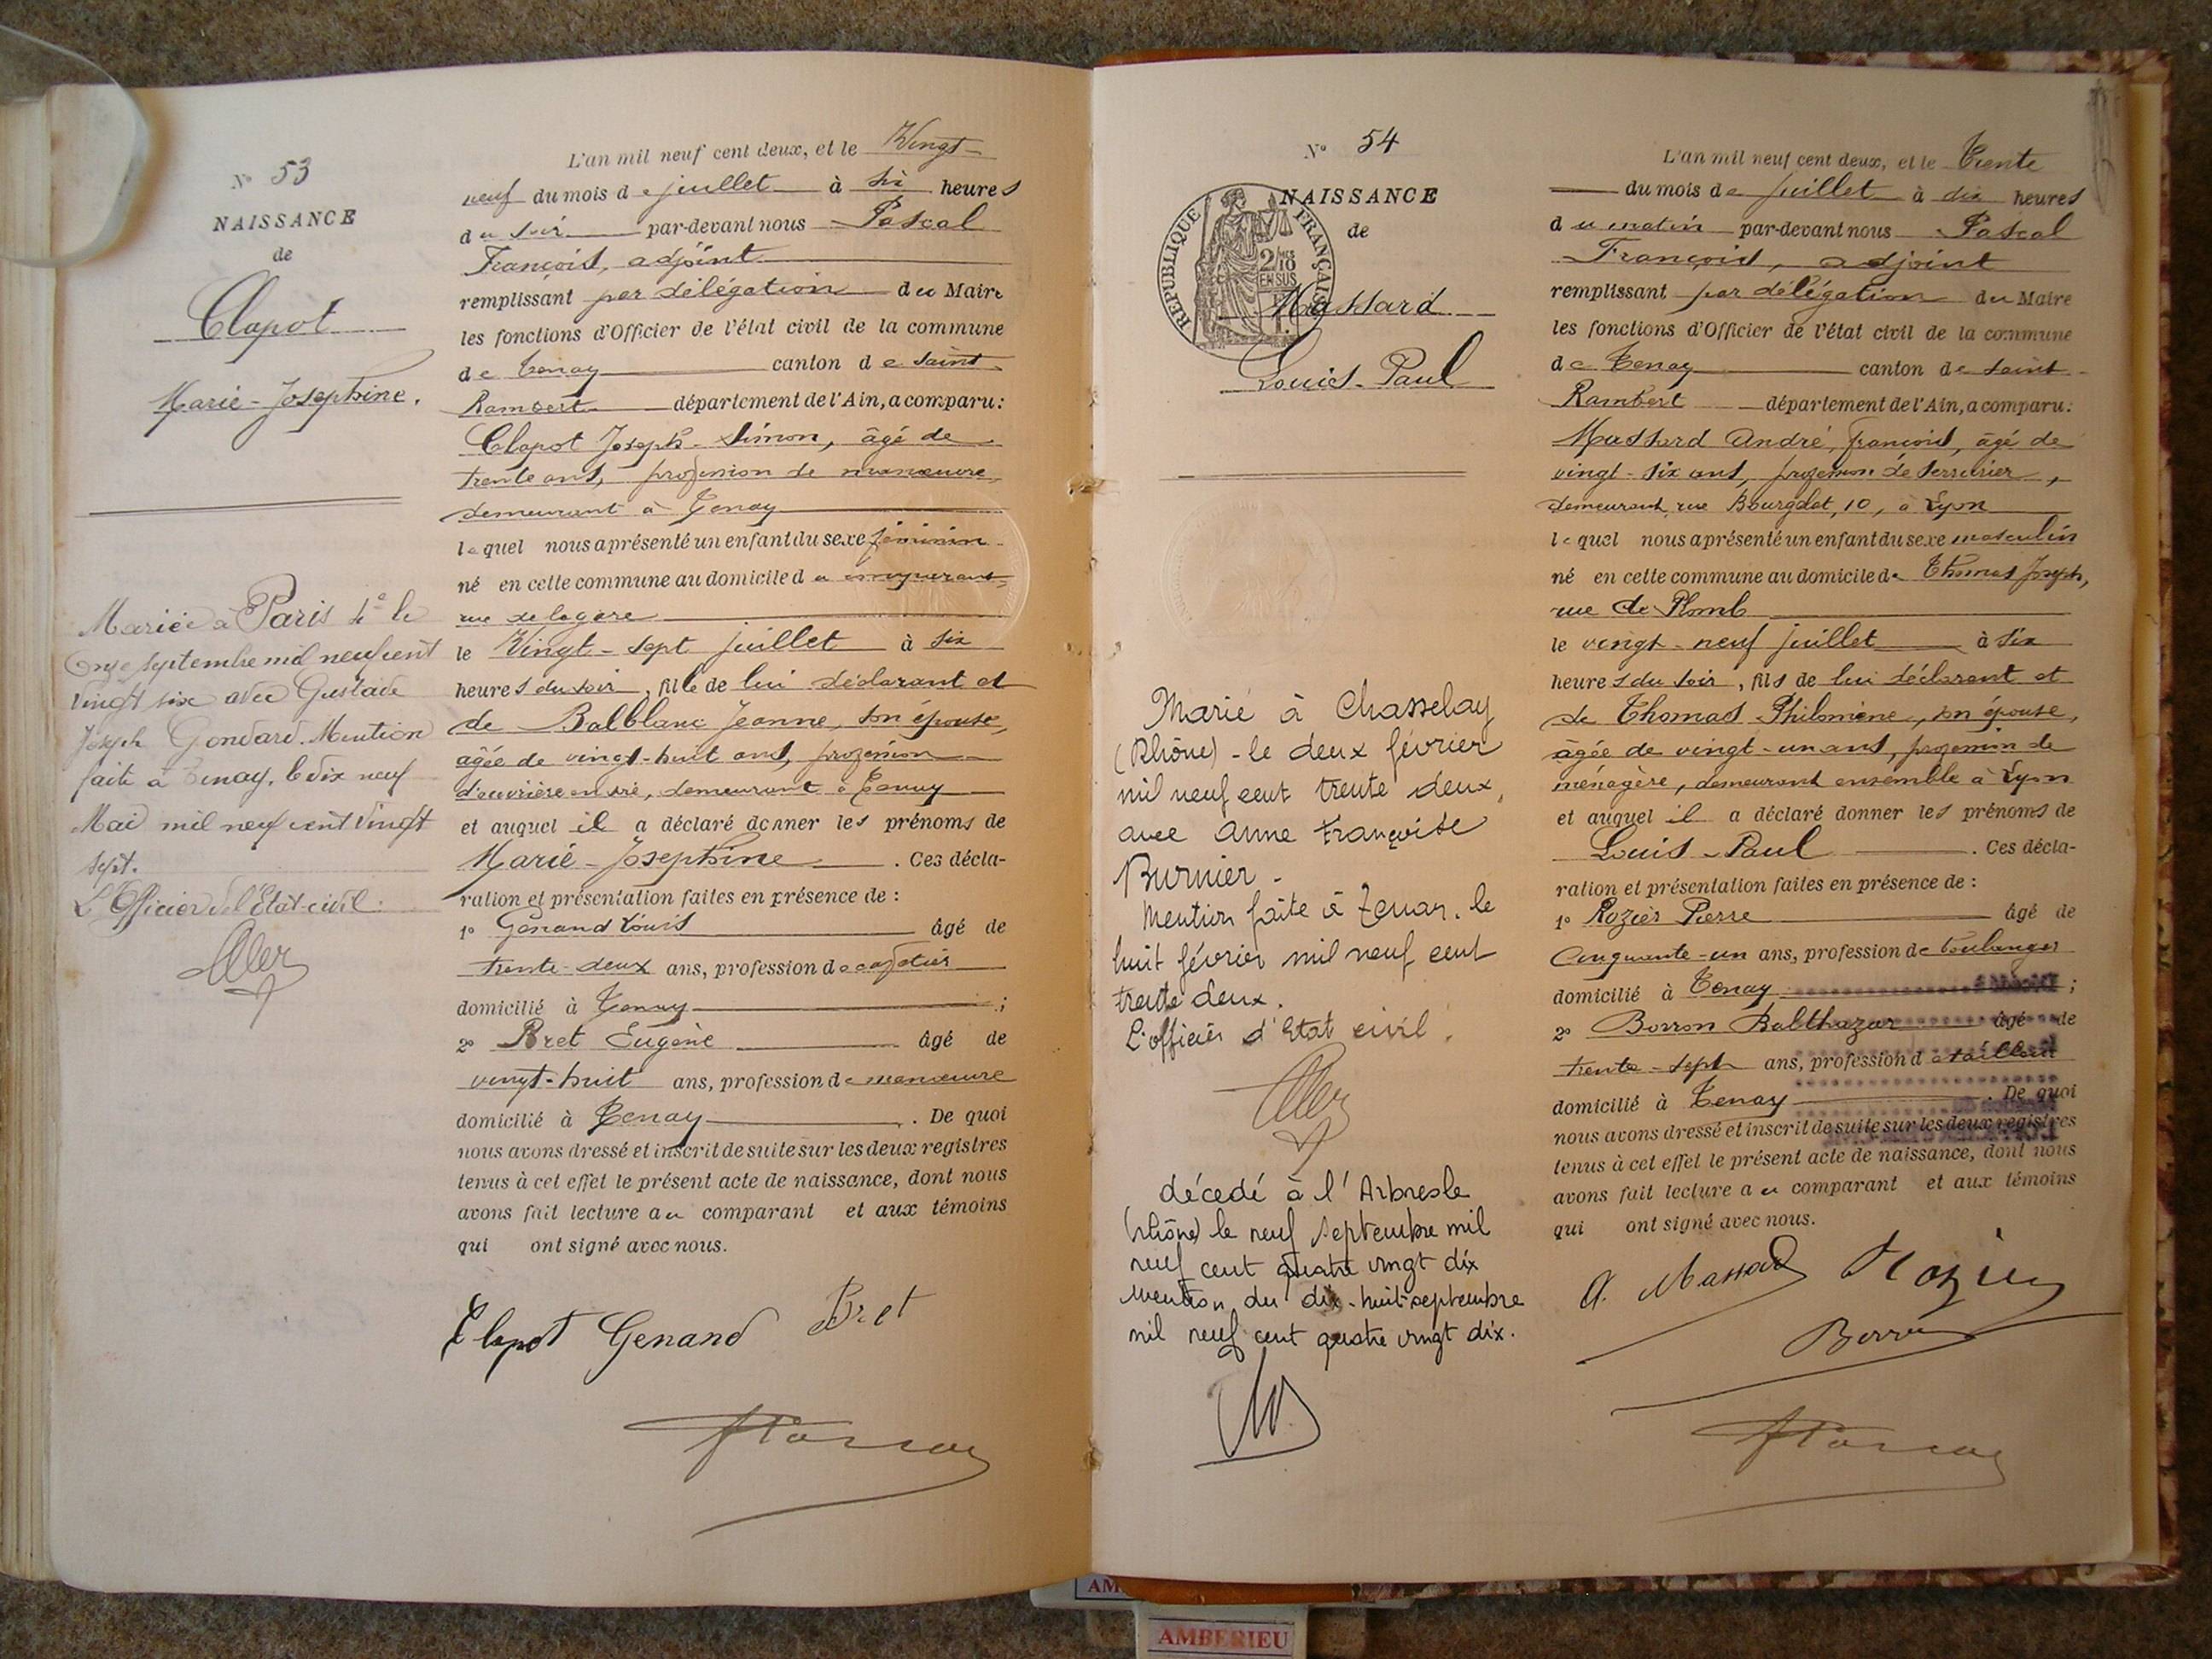 N° 53
NAISSANCE
de
Clapot
Marie-Josephine.
Mariée à Paris 4e le
Onze septembre mil neuf cent
vingt six avec Gustave
Joseph Gondard. Mention
faite à Tenay, le dix neuf
Mai mil neuf cent vingt
sept.
L'Officier de l'Etat-civil.
L'an mil neuf cent deux, et le Vingt-
neuf du mois de juillet à six heures
du soir par-devant nous Pascal
François, adjoint
remplissant par délégation du Maire
les fonctions d'Officier de l'état civil de la commune
de Tenay canton de Saint
Rambert département de l'Ain, a comparu:
Clapot Joseph-Simon, âgé de
trente ans, profession de manœuvre
demeurant à Tenay
lequel nous a présenté un enfant du sexe féminin
né en cette commune au domicile du
rue de la gare
le Vingt-sept juillet à six
heures du soir, fille de lui déclarant et
de Balblanc Jeanne, son épouse,
âgée de vingt-huit ans, profession
d'ouvrière en soie, demeurant à Tenay
et auquel il a déclaré donner les prénoms de
Marie-Josephine. Ces décla-
ration et présentation faites en présence de :
1° Genand Louis âgé de
trente-deux ans, profession de cafetier
domicilié à Tenay ;
2° Bret Eugène âgé de
vingt-huit ans, profession de manœuvre
domicilié à Tenay. De quoi
nous avons dressé et inscrit de suite sur les deux registres
tenus à cet effet le présent acte de naissance, dont nous
avons fait lecture au comparant et aux témoins
qui ont signé avec nous.
Clapot Genand Bret
N° 54
NAISSANCE
de
REPUBLIQUE FRANÇAISE
2/10
EN SUS
Massard
Louis-Paul
Marié à Chasselay
(Rhône) - le deux février
mil neuf cent trente deux,
avec Anne Françoise
Burnier -
Mention faite à Tenay, le
huit février mil neuf cent
trente deux.
L'officier d'Etat civil.
décedé à l'Arbresle
(Rhône) le neuf septembre mil
neuf cent quatre vingt dix
Mention du dix-huit septembre
mil neuf cent quatre vingt dix.
L'an mil neuf cent deux, et le Trente
du mois de juillet à dix heures
du matin par-devant nous Pascal
François, adjoint
remplissant par délégation du Maire
les fonctions d'Officier de l'état civil de la commune
de Tenay canton de Saint-
Rambert département de l'Ain, a comparu:
Massard André, françois, âgé de
vingt-six ans, profession de serrurier,
demeurant, rue Bourgelat, 10, à Lyon
lequel nous a présenté un enfant du sexe masculin
né en cette commune au domicile de Thomas Joseph,
rue de Plomb
le vingt-neuf juillet à six
heures du soir, fils de lui déclarant et
de Thomas Philomène, son épouse,
âgée de vingt-un ans, profession de
ménagère, demeurant ensemble à Lyon
et auquel il a déclaré donner les prénoms de
Louis-Paul. Ces décla-
ration et présentation faites en présence de :
1° Rozier Pierre âgé de
Cinquante-un ans, profession de boulanger
domicilié à Tenay ;
2° Borron Balthazar âgé de
trente-sept ans, profession de
domicilié à Tenay. De quoi
nous avons dressé et inscrit de suite sur les deux registres
tenus à cet effet le présent acte de naissance, dont nous
avons fait lecture au comparant et aux témoins
qui ont signé avec nous.
A. Massard Rozier
Borron
AMBERIEU